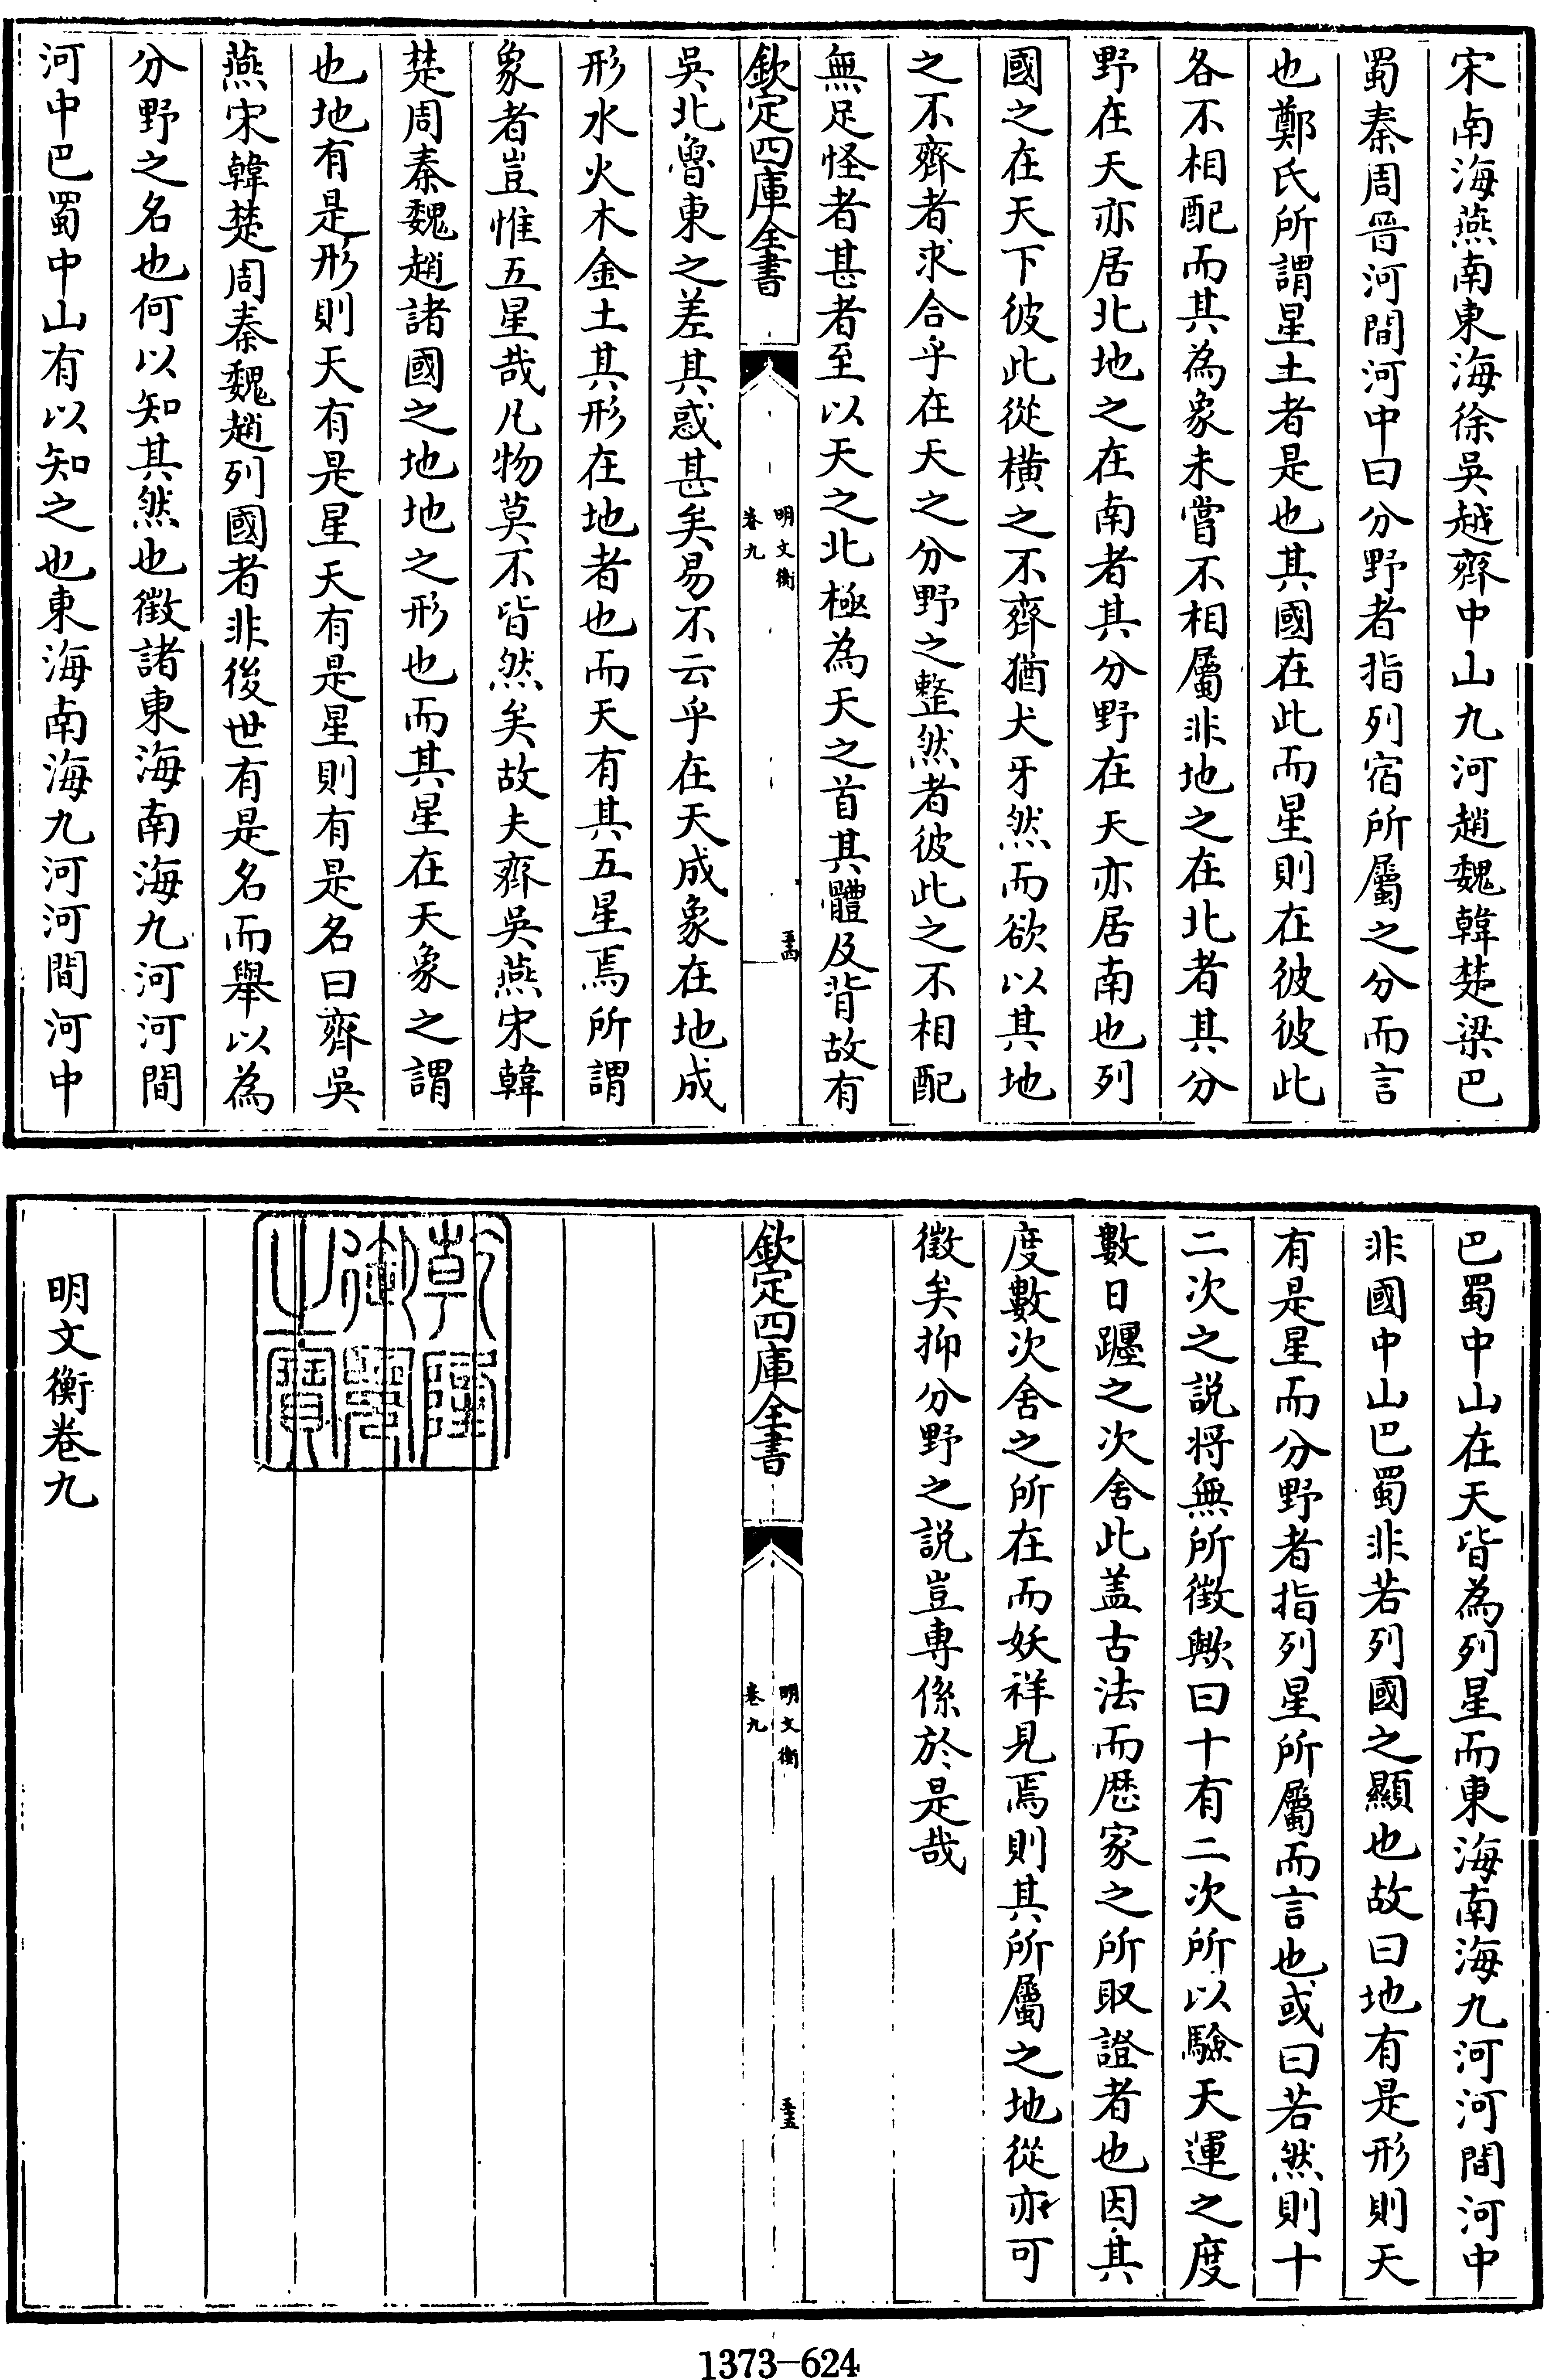 宋南海燕南東海徐吳越齊中山九河趙魏韓楚梁巴
蜀秦周晉河間河中曰分野者指列宿所屬之分而言
也鄭氏所謂星土者是也其國在此而星則在彼彼此
各不相配而其為象未嘗不相屬非地之在北者其分
野在天亦居北地之在南者其分野在天亦居南也列
國之在天下彼此從橫之不齊猶犬牙然而欲以其地
之不齊者求合乎在天之分野之整然者彼此之不相配
無足怪者甚者至以天之北極為天之首其體及背故有
欽定四庫全書
明文衡
卷九
五十四
吳北魯東之差其惑甚矣易不云乎在天成象在地成
形水火木金土其形在地者也而天有其五星焉所謂
象者豈惟五星哉凡物莫不皆然矣故夫齊吳燕宋韓
楚周秦魏趙諸國之地地之形也而其星在天象之謂
也地有是形則天有是星天有是星則有是名曰齊吳
燕宋韓楚周秦魏趙列國者非後世有是名而舉以為
分野之名也何以知其然也徵諸東海南海九河河間
河中巴蜀中山有以知之也東海南海九河河間河中
巴蜀中山在天皆為列星而東海南海九河河間河中
非國中山巴蜀非若列國之顯也故曰地有是形則天
有是星而分野者指列星所屬而言也或曰若然則十
二次之說將無所徵歟曰十有二次所以驗天運之度
數日躔之次舍此盖古法而厯家之所取證者也因其
度數次舍之所在而妖祥見焉則其所屬之地從亦可
徵矣抑分野之說豈専係於是哉
欽定四庫全書
明文衡
卷九
五十五
乾隆
御覽
之寶
明文衡卷九
1373-624